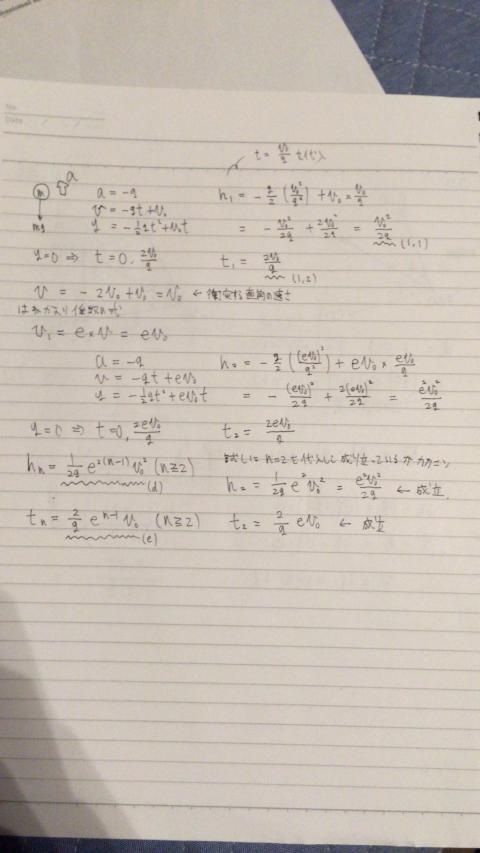 No.
Date
t = v₀/g を代入
m a
mg
a = -g
v = -gt + v₀
y = -1/2 gt² + v₀t
h₁ = -g/2 (v₀²/g²) + v₀ × v₀/g
= -v₀²/2g + 2v₀²/2g = v₀²/2g (1,1)
y=0 ⇒ t = 0, 2v₀/g t₁ = 2v₀/g (1,2)
v = -2v₀ + v₀ = v₀ ← 衝突する直前の速さ
はねかえり係数の式
v₁ = e × v = ev₀
a = -g
v = -gt + ev₀
y = -1/2 gt² + ev₀t
h₂ = -g/2 ((ev₀)²/g²) + ev₀ × ev₀/g
= -(ev₀)²/2g + 2(ev₀)²/2g = e²v₀²/2g
y=0 ⇒ t = 0, 2ev₀/g t₂ = 2ev₀/g
hₙ = 1/2g e²⁽ⁿ⁻¹⁾ v₀² (n≥2) (d)
試しに n=2 を代入して成り立っているかカクニン
h₂ = 1/2g e² v₀² = e²v₀²/2g ← 成立.
tₙ = 2/g eⁿ⁻¹ v₀ (n≥2) (e)
t₂ = 2/g ev₀ ← 成立